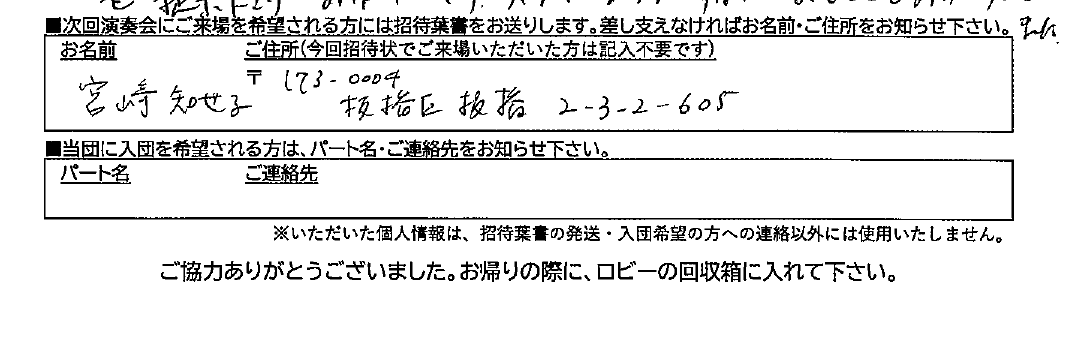 ■次回演奏会にご来場を希望される方には招待葉書をお送りします。差し支えなければお名前・ご住所をお知らせ下さい。
お名前 ご住所(今回招待状でご来場いただいた方は記入不要です)
〒 173-0004
宮崎 知世子 板橋区板橋 2-3-2-605
■当団に入団を希望される方は、パート名・ご連絡先をお知らせ下さい。
パート名 ご連絡先
※いただいた個人情報は、招待葉書の発送・入団希望の方への連絡以外には使用いたしません。
ご協力ありがとうございました。お帰りの際に、ロビーの回収箱に入れて下さい。